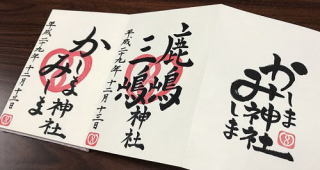 かしま神社
みしま
平成二九年十二月十三日
鹿嶋
三嶋神社
平成二十九年十二月十三日
かしま
み神社
しま